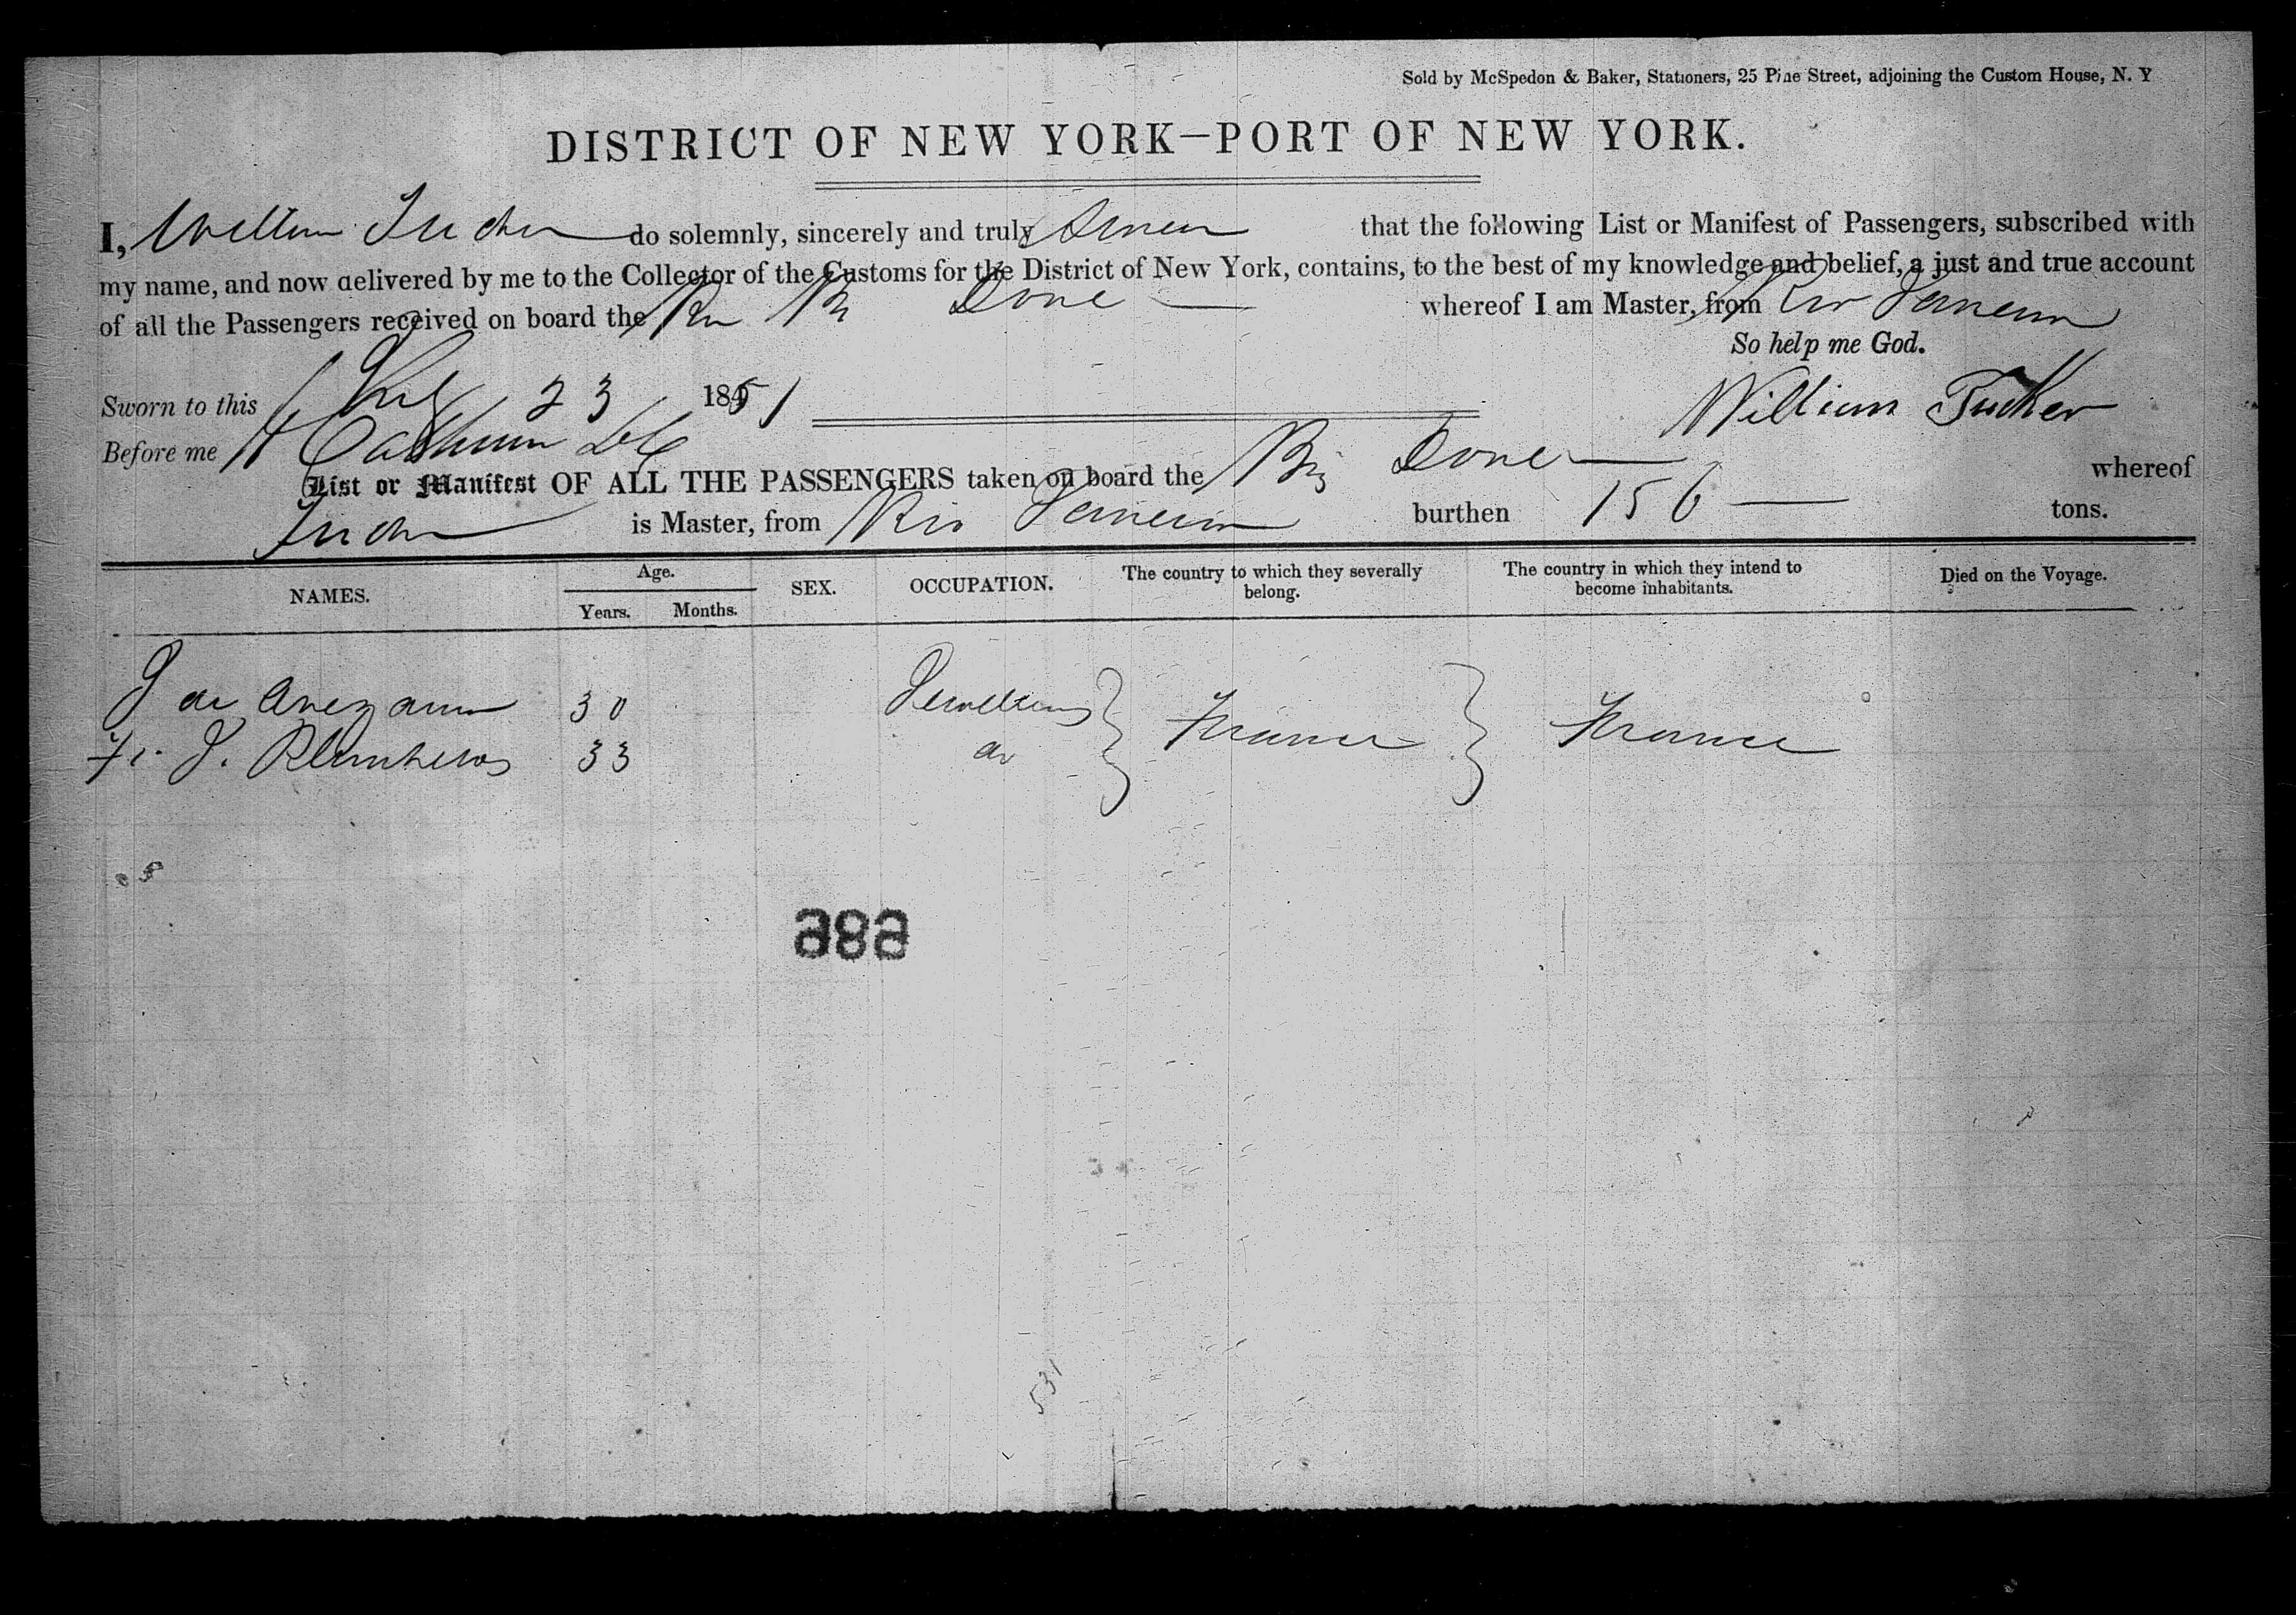 Sold by McSpedon & Baker, Stationers, 25 Pine Street, adjoining the Custom House, N. Y
DISTRICT OF NEW YORK—PORT OF NEW YORK.
I, William Tucker do solemnly, sincerely and truly Swear that the following List or Manifest of Passengers, subscribed with
my name, and now delivered by me to the Collector of the Customs for the District of New York, contains, to the best of my knowledge and belief, a just and true account
of all the Passengers received on board the Br Dove whereof I am Master, from Rio Janeiro
So help me God.
Sworn to this 23 1851
William Tucker
Before me H Calhoun
List or Manifest OF ALL THE PASSENGERS taken on board the Brig Dove whereof
Tucker is Master, from Rio Janeiro burthen 156 tons.
NAMES. Age. Years. Months. SEX. OCCUPATION. The country to which they severally belong. The country in which they intend to become inhabitants. Died on the Voyage.
J de 30 Jewellers France France
J. 33 do
989
531